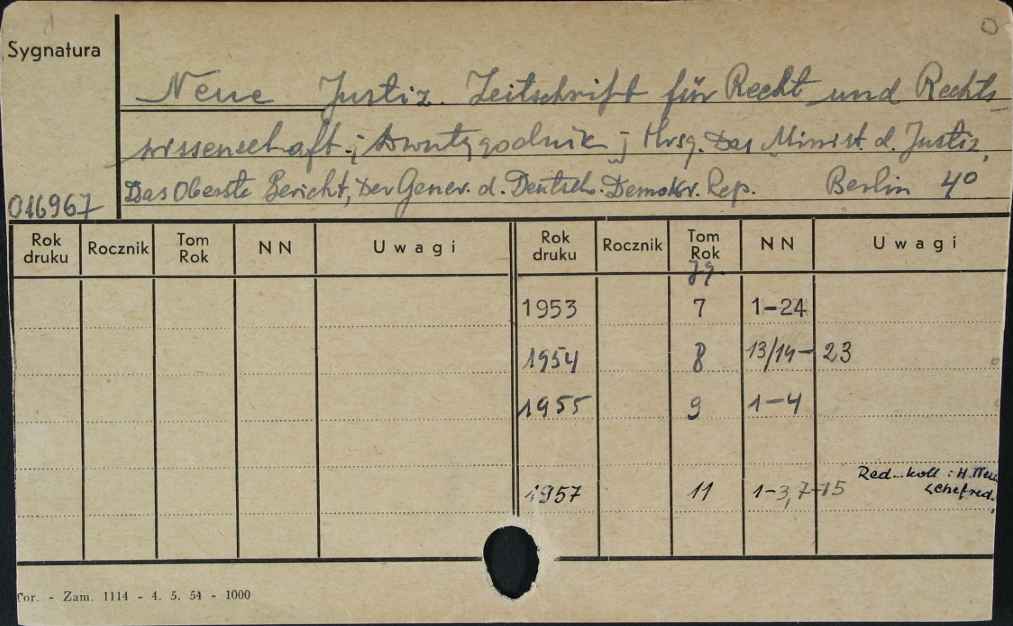 Sygnatura
Neue Justiz. Zeitschrift für Recht und Rechts-
wissenschaft.; dwutygodnik; Hrsg. Das Minist. d. Justiz,
Das Oberste Gericht, Der Gener. d. Deutsch. Demokr. Rep. Berlin 4º
016967
Rok druku Rocznik Tom Rok NN Uwagi Rok druku Rocznik Tom Rok NN Uwagi
Jg.
1953 7 1-24
1954 8 13/14-23
1955 9 1-4
Red. koll: H.
1957 11 1-3, 7-15 Chefred.
For. - Zam. 1114 - 4. 5. 54 - 1000